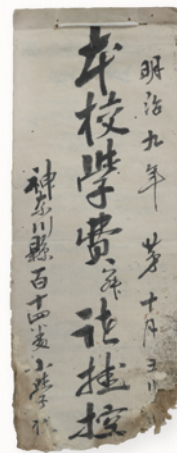 明治九年 第十月ヨリ
本校学費
諸掛控
神奈川縣百十四番小学校